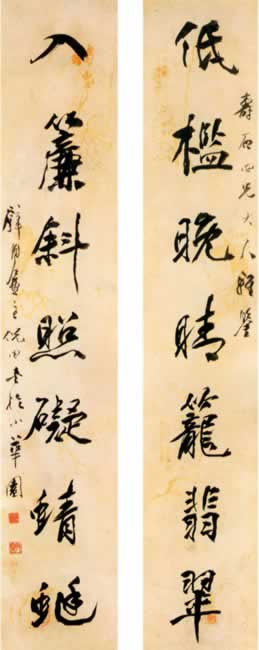 低檻晚晴籠翡翠
壽石兄大人雅鑒
入簾斜照礙蜻蜓
璧月盦主倪田書於小華園